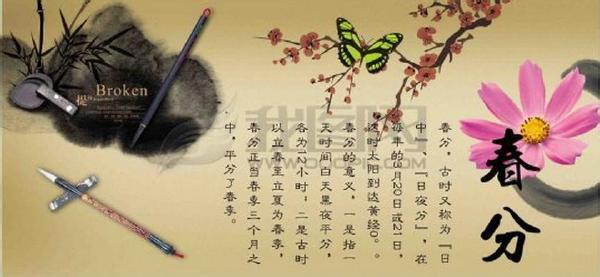 春分
春分，古时又称为“日
中”、“日夜分”，在
每年的3月20日或21日，
这时太阳到达黄经0。。
春分的意义，一是指一
天时间白天黑夜平分，
各为12小时；二是古时
以立春至立夏为春季，
春分正当春季三个月之
中，平分了春季。
Broken